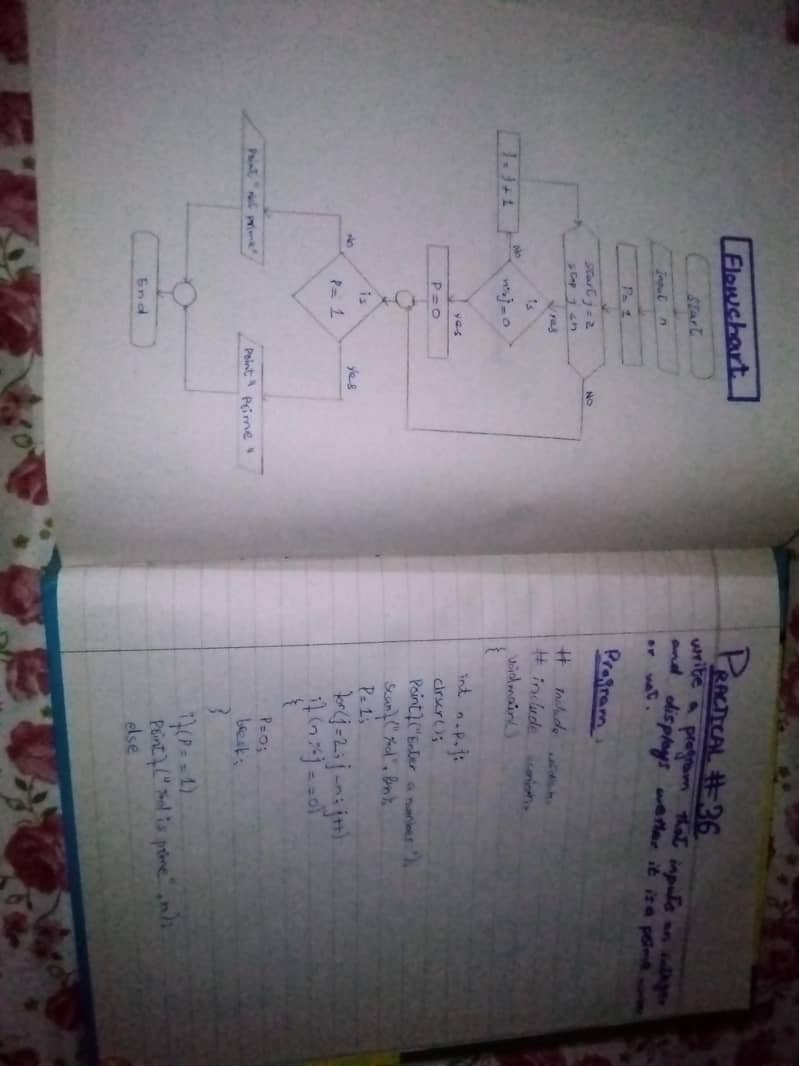 Flowchart
Start
input n
P=1
start j=2
stop j<n
NO
yes
is
n%j=0
NO
j=j+1
yes
P=0
is
P=1
NO
Yes
Print "not prime"
Print "prime"
End
PRACTICAL # 36
write a program that inputs an integer
and displays wether it is a prime
or not.
Program
# include
# include
void main()
{
int n, p, j;
clrscr();
Printf("Enter a number");
scanf("%d", &n);
P=1;
for(j=2; j n; j++)
if(n%j==0)
{
P=0;
break;
}
if(P==1)
Printf("%d is prime", n);
else